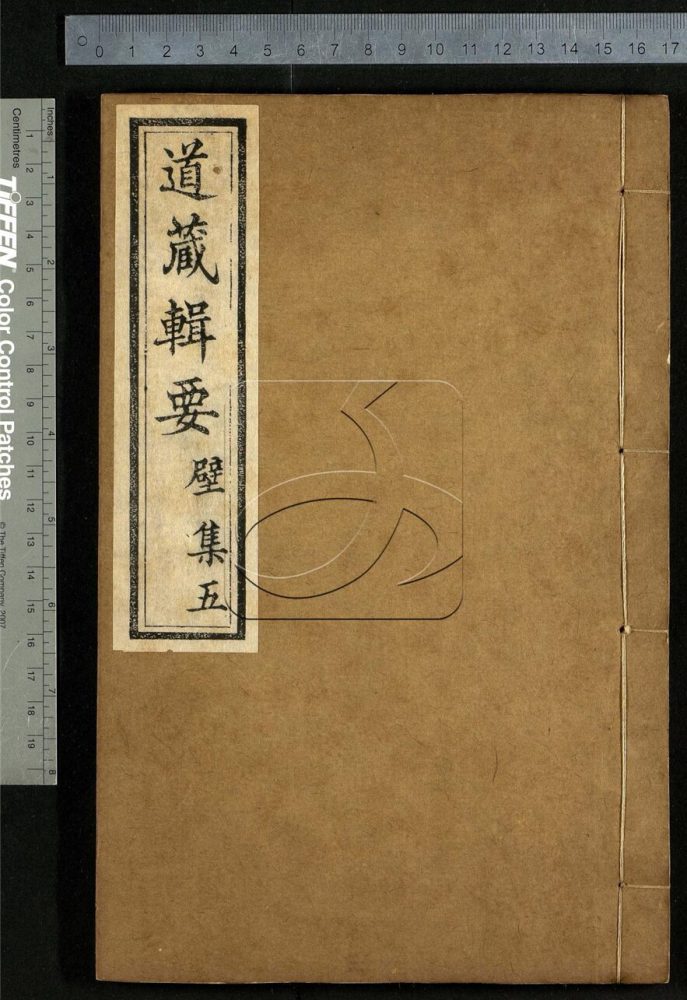 0 1 2 3 4 5 6 7 8 9 10 11 12 13 14 15 16 17
道藏輯要
壁集五
Inches
1 2 3 4 5 6 7 8
Centimetres
1 2 3 4 5 6 7 8 9 10 11 12 13 14 15 16 17 18 19
TIFFEN Color Control Patches
© The Tiffen Company, 2007